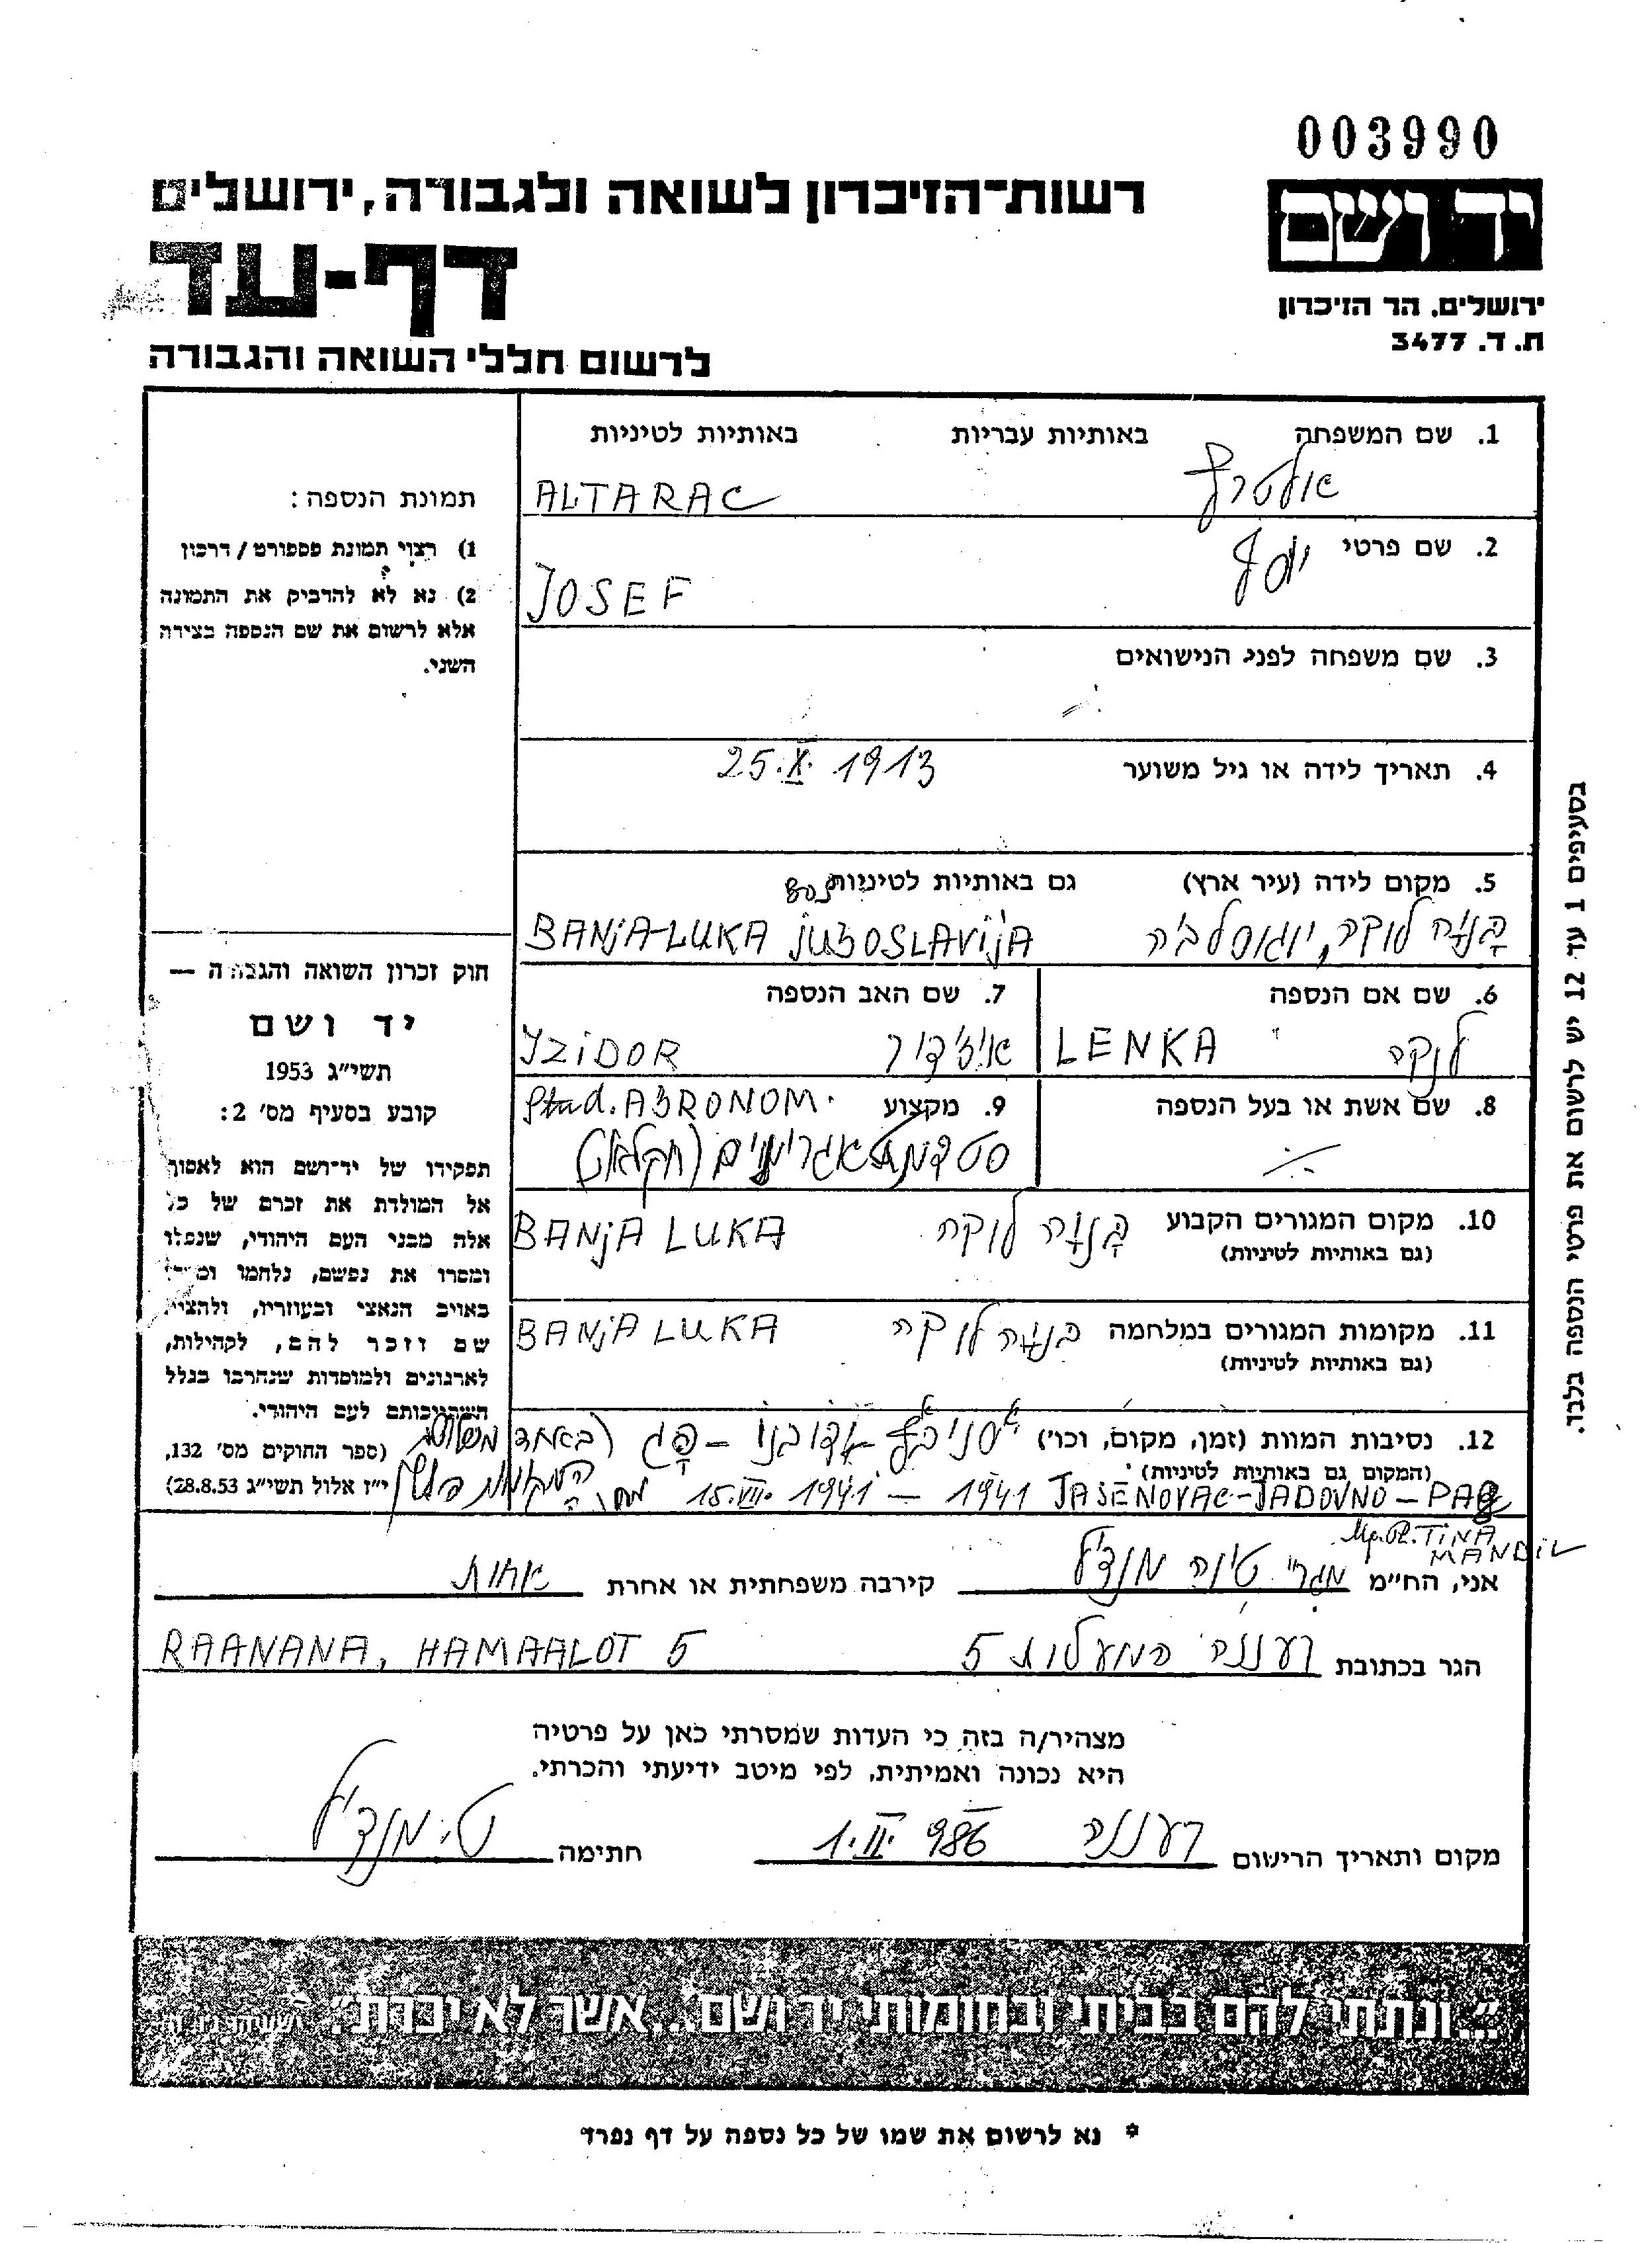 003990
יד ושם
רשות־הזיכרון לשואה ולגבורה, ירושלים
דף-עד
ירושלים. הר הזיכרון
ת. ד. 3477
לרשום חללי השואה והגבורה
1. שם המשפחה באותיות עבריות באותיות לטיניות
אלטרץ ALTARAC
2. שם פרטי יוסף
JOSEF
3. שם משפחה לפני הנישואים
4. תאריך לידה או גיל משוער 25.X.1913
5. מקום לידה (עיר ארץ) גם באותיות לטיניות
בנזה לוקה, יוגוסלביה BANjA-LUKA
6. שם אם הנספה
לנקה LENKA
7. שם האב הנספה
איזידור IZIDOR
8. שם אשת או בעל הנספה
9. מקצוע Stud. AGRONOM.
סטודנט
10. מקום המגורים הקבוע בנזה לוקה BANjA LUKA
(גם באותיות לטיניות)
11. מקומות המגורים במלחמה בנזה לוקה BANjA LUKA
(גם באותיות לטיניות)
12. נסיבות המוות (זמן, מקום, וכו') (באחד
(המקום גם באותיות לטיניות)
JASENOVAC-JADOVNO-PAG 1941 - 15.VIII.1941
תמונת הנספה:
1) רצוי תמונת פספורט / דרכון
2) נא לא להדביק את התמונה
אלא לרשום את שם הנספה בצידה
השני.
חוק זכרון השואה והגבורה —
יד ושם
תשי"ג 1953
קובע בסעיף מס' 2:
תפקידו של יד־ושם הוא לאסוף
אל המולדת את זכרם של כל
אלה מבני העם היהודי, שנפלו
ומסרו את נפשם, נלחמו ומרדו
באויב הנאצי ובעוזריו, ולהציב
שם וזכר להם, לקהילות,
לארגונים ולמוסדות שנחרבו בגלל
השתייכותם לעם היהודי.
(ספר החוקים מס' 132,
י"ז אלול תשי"ג 28.8.53)
בסעיפים 1 עד 12 יש לרשום את פרטי הנספה בלבד.
TINA
MANDIL
אני, הח"מ מגר' טינה מנדיל קירבה משפחתית או אחרת אחות
הגר בכתובת רעננה המעלות 5 RAANANA, HAMAALOT 5
מצהיר/ה בזה כי העדות שמסרתי כאן על פרטיה
היא נכונה ואמיתית, לפי מיטב ידיעתי והכרתי.
מקום ותאריך הרישום רעננה 1.II.986 חתימה ט. מנדיל
"...ונתתי להם בביתי ובחומותי יד ושם...אשר לא יכרת"
* נא לרשום את שמו של כל נספה על דף נפרד